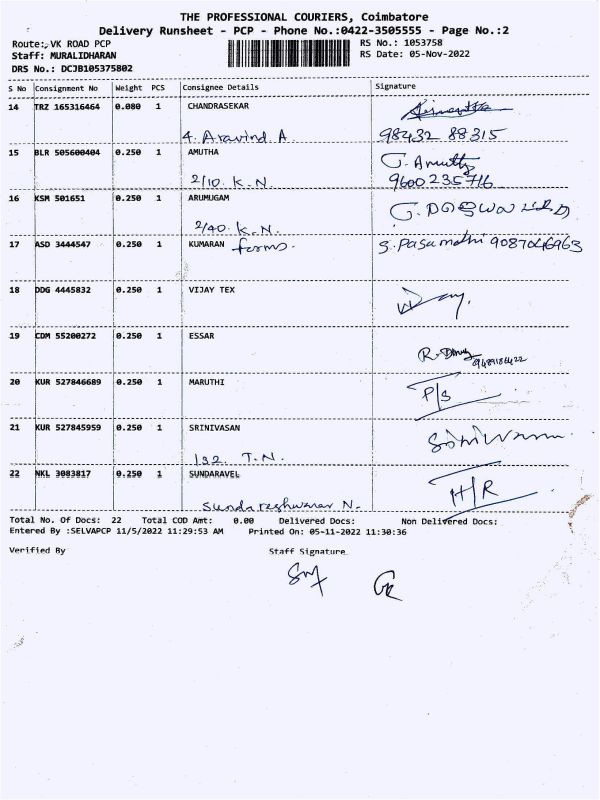 THE PROFESSIONAL COURIERS, Coimbatore
Delivery Runsheet - PCP - Phone No.:0422-3505555 - Page No.:2
Route:,VK ROAD PCP
RS No.: 1053758
Staff: MURALIDHARAN
RS Date: 05-Nov-2022
DRS No.: DCJB105375802
S No Consignment No Weight PCS Consignee Details Signature
14 TRZ 165316464 0.080 1 CHANDRASEKAR
4. Aravind A 98432 88315
15 BLR 505600404 0.250 1 AMUTHA
2/10. K.N. 9600235716
16 KSM 501651 0.250 1 ARUMUGAM
2/40. K.N.
17 ASD 3444547 0.250 1 KUMARAN farms. S. Pasamathi 9087046963
18 DDG 4445832 0.250 1 VIJAY TEX
19 CDM 55200272 0.250 1 ESSAR
20 KUR 527846689 0.250 1 MARUTHI P/S
21 KUR 527845959 0.250 1 SRINIVASAN
132. T.N.
22 NKL 3083817 0.250 1 SUNDARAVEL H/R
Sundareshwarar N.
Total No. Of Docs: 22 Total COD Amt: 0.00 Delivered Docs: Non Delivered Docs:
Entered By :SELVAPCP 11/5/2022 11:29:53 AM Printed On: 05-11-2022 11:30:36
Verified By Staff Signature